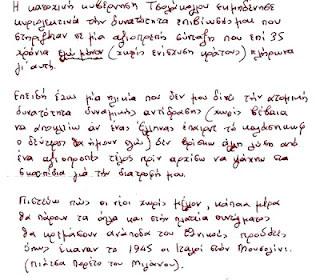 Η κατοχική κυβέρνηση Τσολάκογλου εκμηδένησε
κυριολεκτικά την δυνατότητα επιβίωσής μου που
στηριζόταν σε μία αξιοπρεπή σύνταξη που επί 35
χρόνια εγώ μόνον (χωρίς ενίσχυση κράτους) πλήρωνα
γι' αυτή.
Επειδή έχω μία ηλικία που δεν μου δίνει την ατομική
δυνατότητα δυναμικής αντίδρασης (χωρίς βέβαια
να αποκλείω αν ένας Έλληνας έπαιρνε το καλάσνικωφ
ο δεύτερος θα ήμουν εγώ) δεν βρίσκω άλλη λύση από
ένα αξιοπρεπές τέλος πριν αρχίσω να ψάχνω τα
σκουπίδια για την διατροφή μου.
Πιστεύω πως οι νέοι χωρίς μέλλον, κάποια μέρα
θα πάρουν τα όπλα και στην πλατεία συντάγματος
θα κρεμάσουν ανάποδα τους εθνικούς προδότες
όπως έκαναν το 1945 οι Ιταλοί στον Μουσολίνι.
(πιάτσα Πορέτο του Μιλάνου).